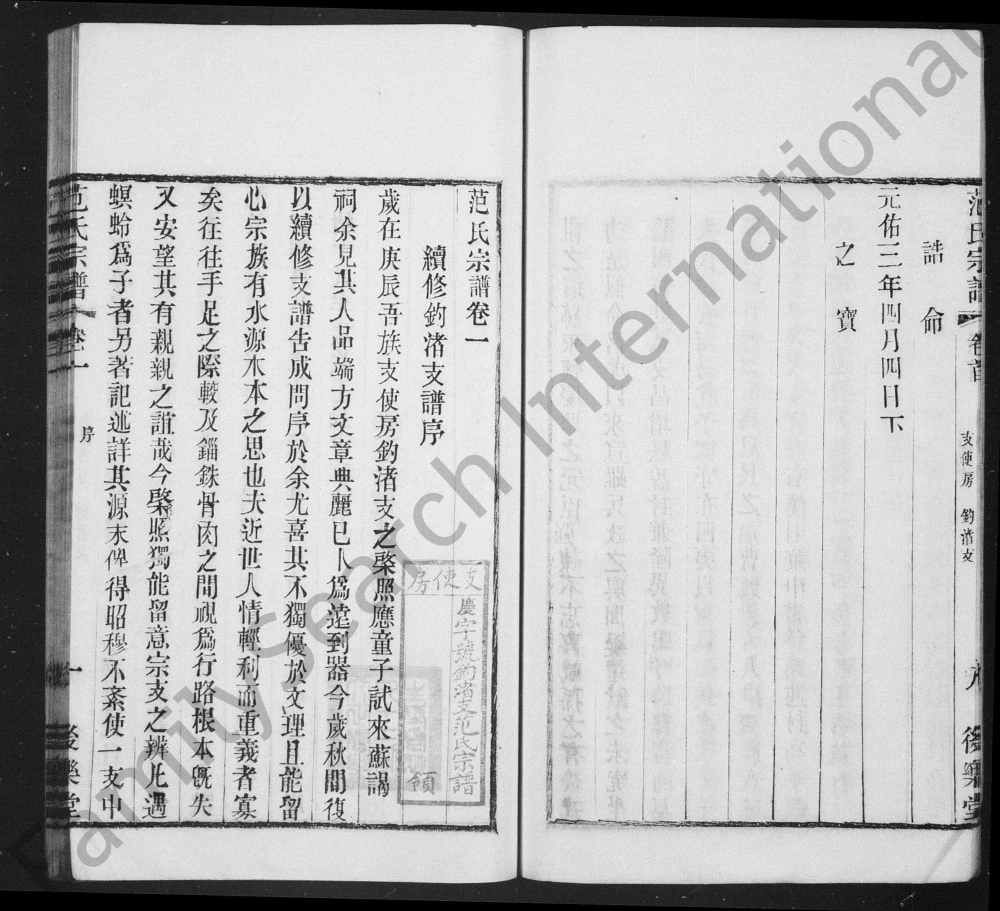 范氏宗譜
卷首
支使房 釣渚支
九
後樂堂
誥命
元佑三年四月四日下
之寶
范氏宗譜卷一
續修釣渚支譜序
歲在庚辰吾族支使房釣渚支之棨照應童子試來蘇謁
祠余見其人品端方文章典麗已卜爲遠到器今歲秋間復
以續修支譜告成問序於余尤喜其不獨優於文理且能留
心宗族有水源木本之思也夫近世人情輕利而重義者寡
矣往往手足之際較及錙銖骨肉之間視爲行路根本既失
又安望其有親親之誼哉今棨照獨能留意宗支之辨凡遇
螟蛉爲子者另著記述詳其源末俾得昭穆不紊使一支中
范氏宗譜
卷一
序
一
後樂堂
支使房
慶字號釣渚支范氏宗譜
領
FamilySearch International